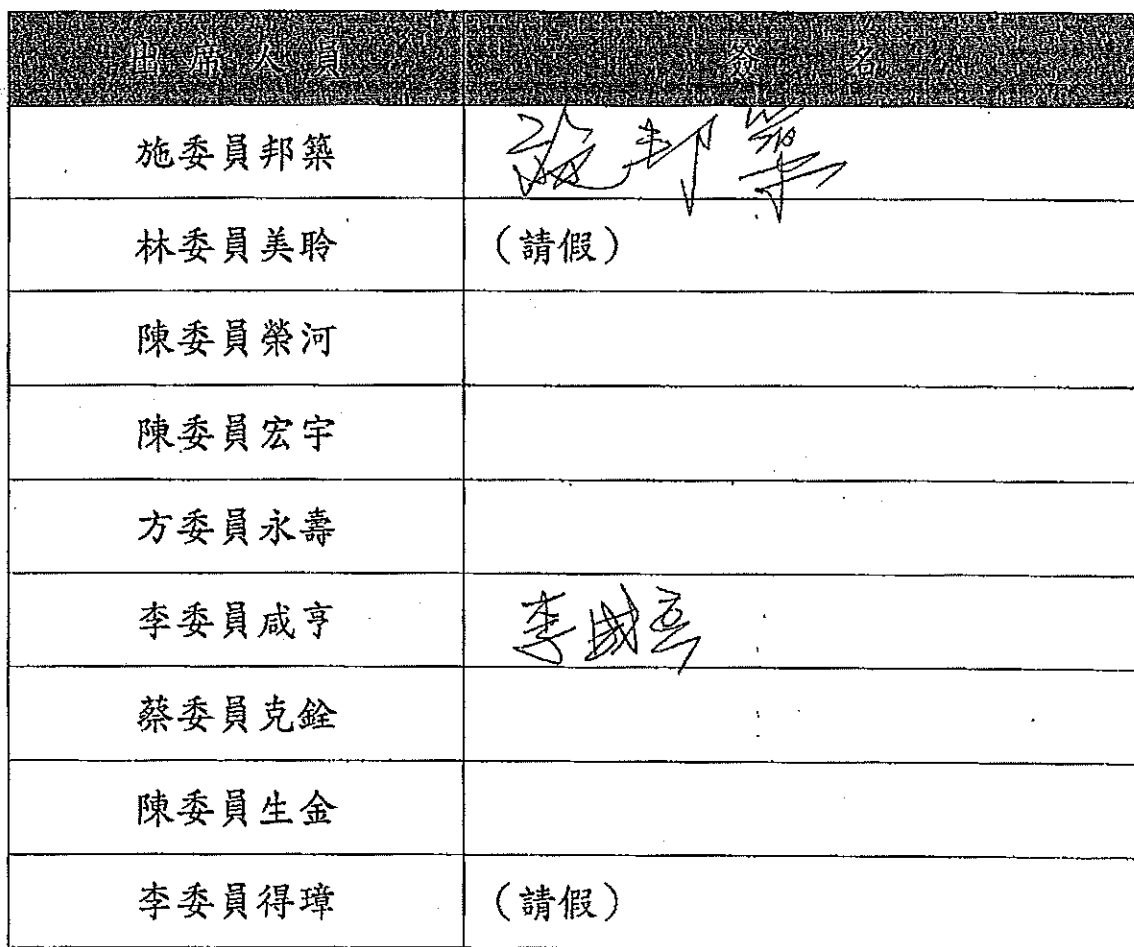 出席人員 簽名
施委員邦築 施邦築
林委員美聆 (請假)
陳委員榮河
陳委員宏宇
方委員永壽
李委員咸亨 李咸亨
蔡委員克銓
陳委員生金
李委員得璋 (請假)